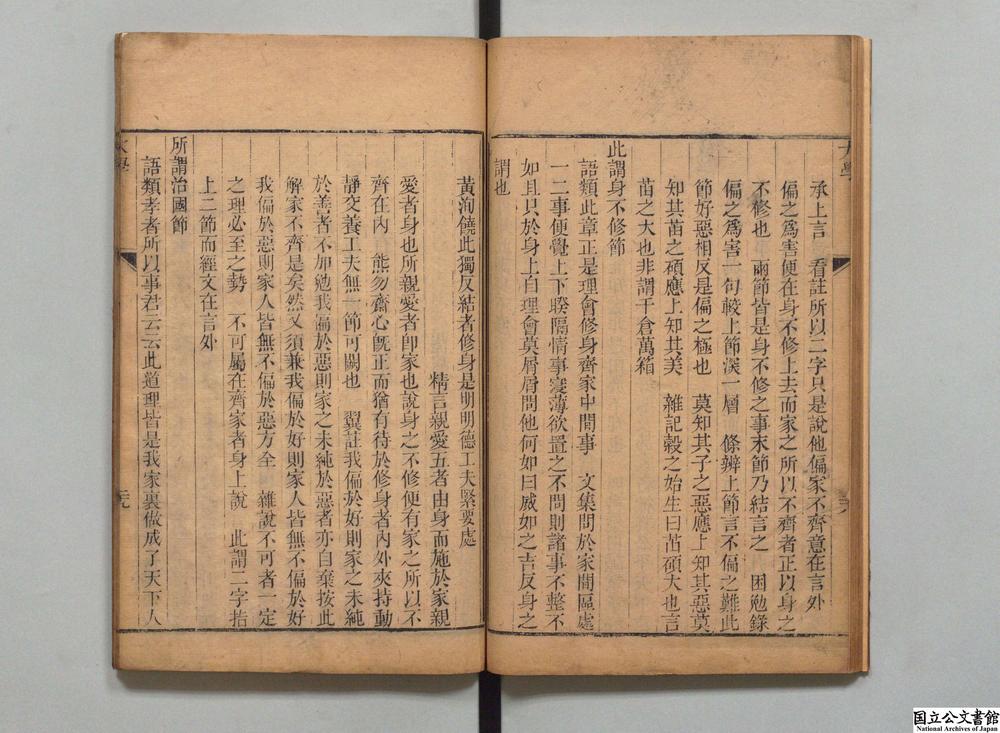 大學
承上言　看註所以二字只是說他偏家不齊意在言外
偏之爲害便在身不修上去而家之所以不齊者正以身之
不修也　兩節皆是身不修之事末節乃結言之　困勉錄
偏之爲害一句較上節深一層　條辨上節言不偏之難此
節好惡相反是偏之極也　莫知其子之惡應上知其惡莫
知其苗之碩應上知其美　雜記穀之始生曰苗碩大也言
苗之大也非謂千倉萬箱
此謂身不修節
語類此章正是理會修身齊家中間事　文集問於家間區處
一二事便覺上下睽隔情事寔薄欲置之不問則諸事不整不
如且只於身上自理會莫屑屑問他何如曰威如之吉反身之
謂也
黃洵饒此獨反結者修身是明明德工夫緊要處
精言親愛五者由身而施於家親
愛者身也所親愛者卽家也說身之不修便有家之所以不
齊在內　熊勿齋心旣正而猶有待於修身者內外夾持動
靜交養工夫無一節可闕也　翼註我偏於好則家之未純
於善者不加勉我偏於惡則家之未純於惡者亦自棄按此
解家不齊是矣然又須兼我偏於好則家人皆無不偏於好
我偏於惡則家人皆無不偏於惡方全　雜說不可者一定
之理必至之勢　不可屬在齊家者身上說　此謂二字指
上二節而經文在言外
所謂治國節
語類孝者所以事君云云此道理皆是我家裏做成了天下人
大學
元九
国立公文書館
National Archives of Japan